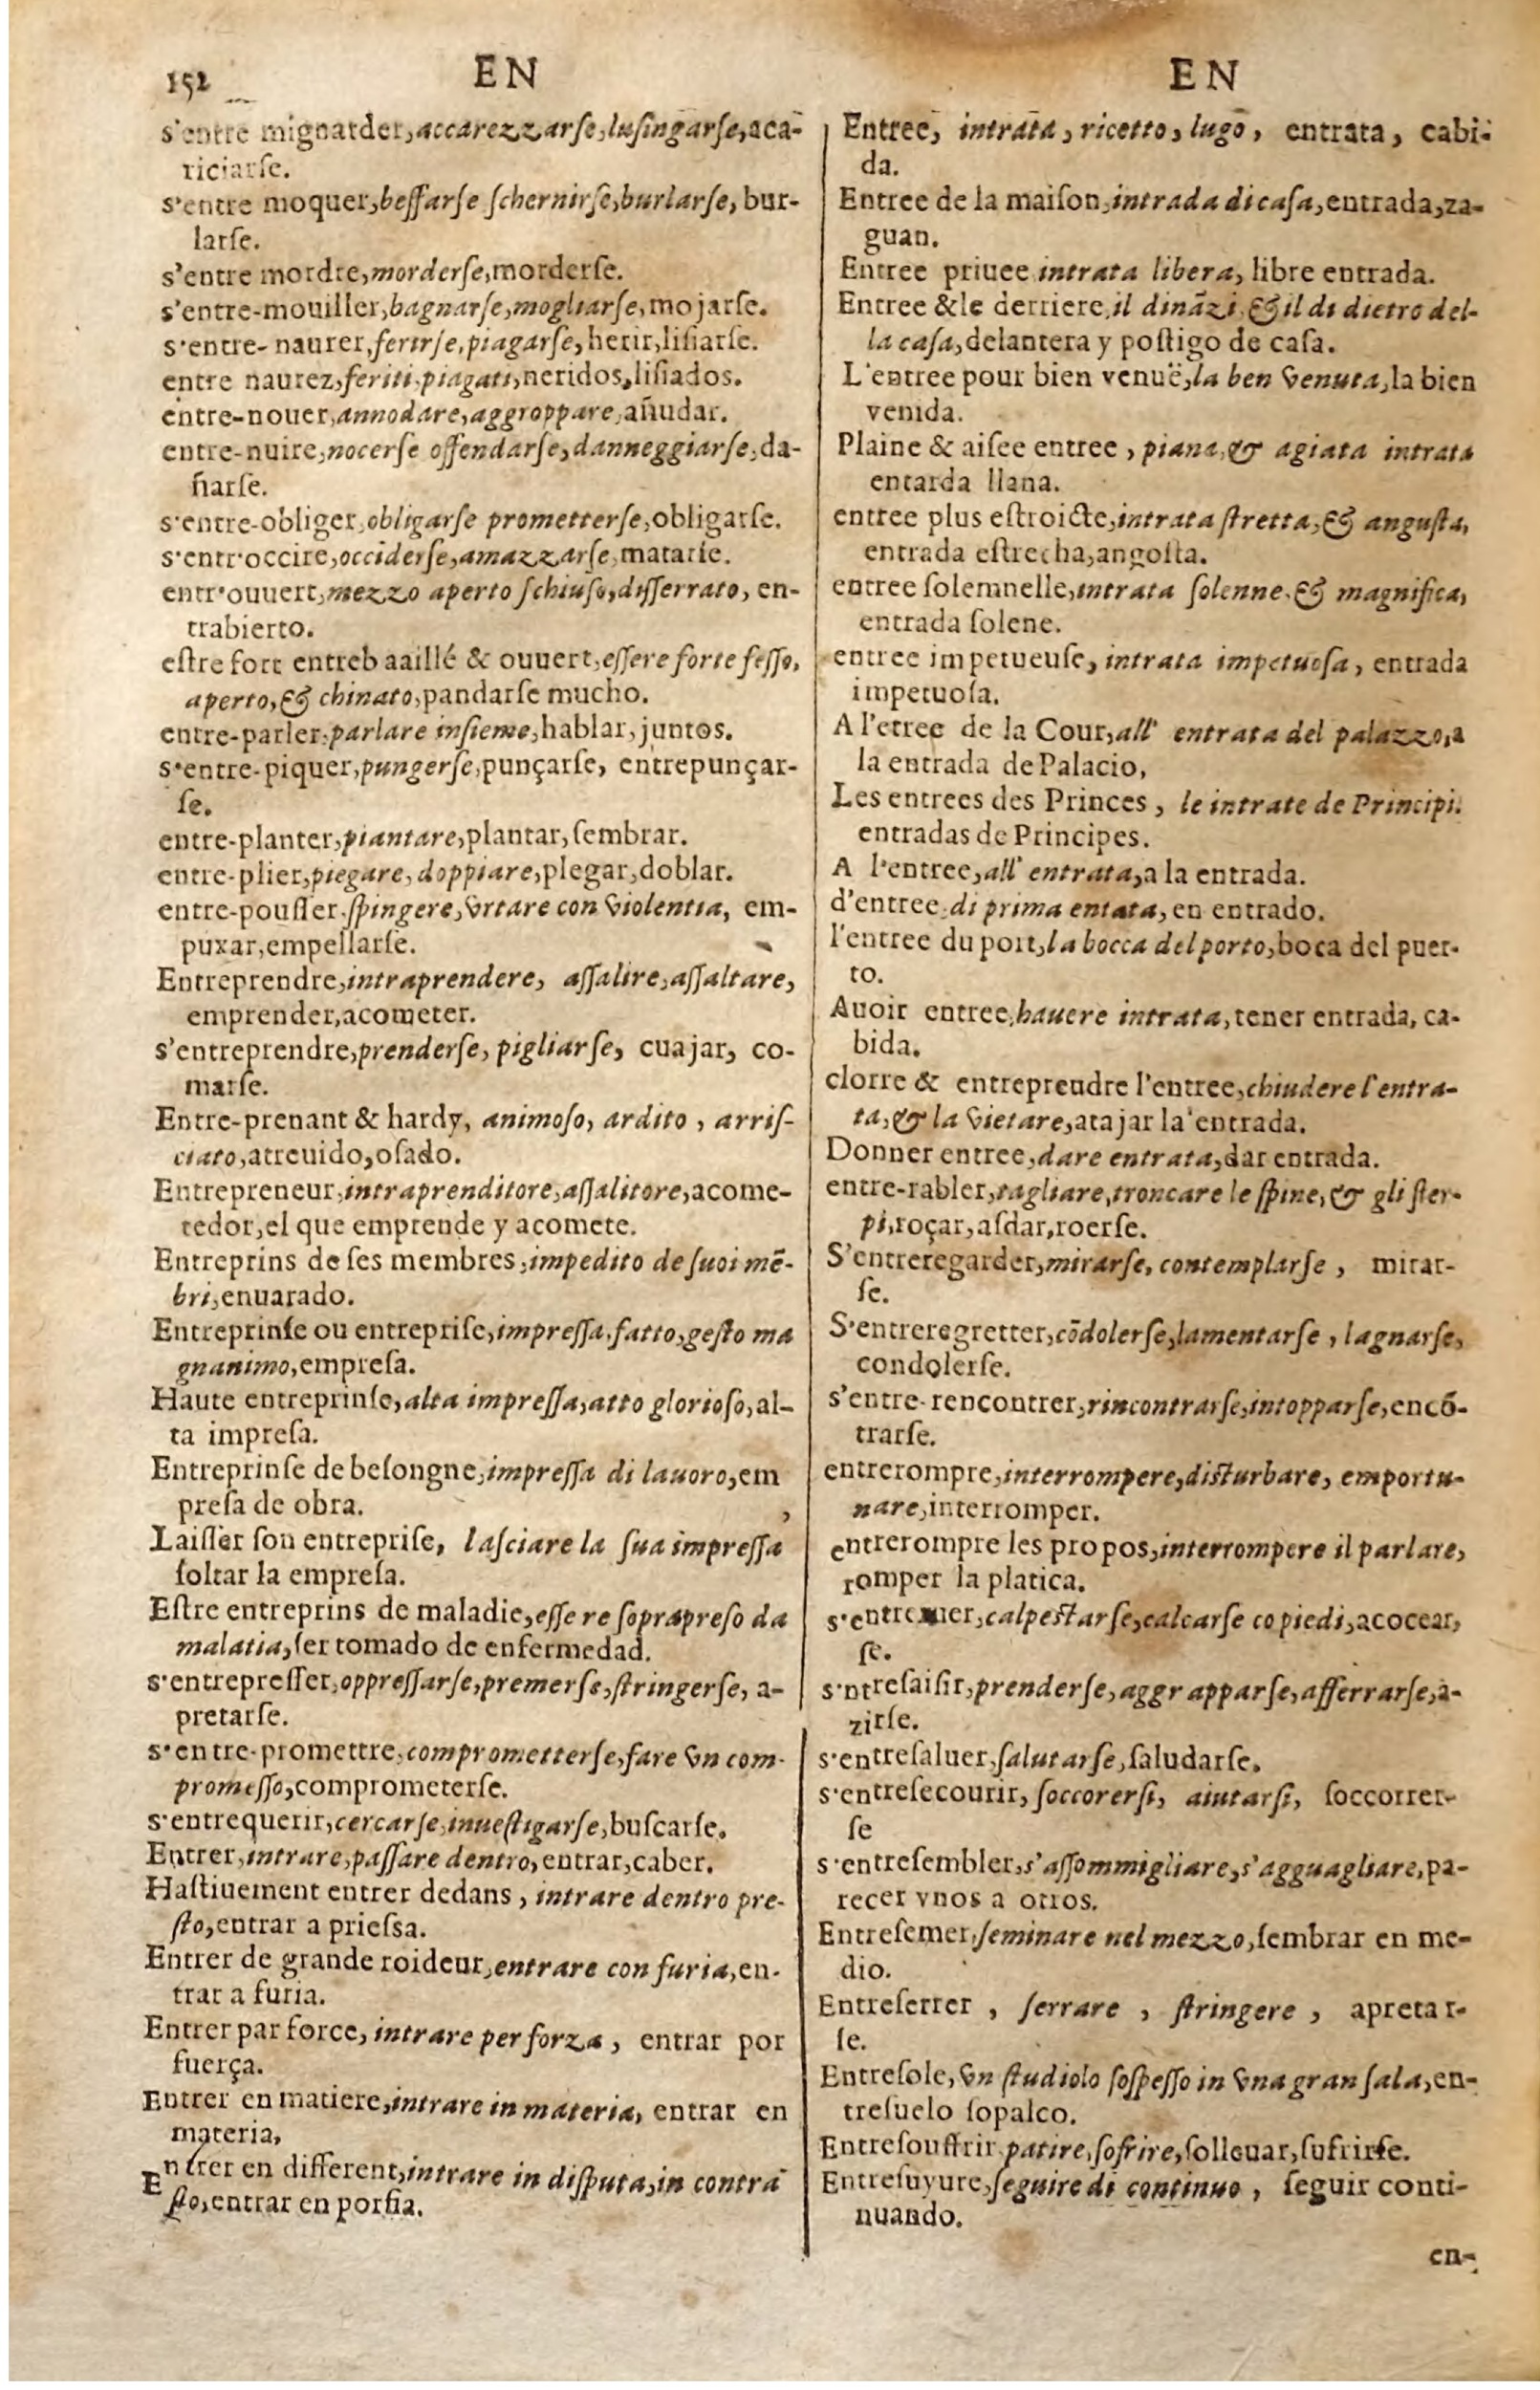 152
EN
EN
s'entre mignarder,accarezzarſe,luſingarſe,aca-
riciarſe.
s'entre moquer,beffarſe ſchernirſe,burlarſe, bur-
larſe.
s'entre mordre,morderſe,morderſe.
s'entre-mouiller,bagnarſe,mogliarſe,mojarſe.
s'entre-naurer,ferirſe,piagarſe,herir,liſiarſe.
entre naurez,feriti,piagati,heridos,liſiados.
entre-nouer,annodare,aggroppare,añudar.
entre-nuire,nocerſe offendarſe,danneggiarſe,da-
ñarſe.
s'entre-obliger,obligarſe prometterſe,obligarſe.
s'entr'occire,occiderſe,amazzarſe,matarſe.
entr'ouuert,mezzo aperto ſchiuſo,diſſerrato, en-
trabierto.
eſtre fort entreb aaillé & ouuert,eſſere forte feſſo,
aperto,& chinato,pandarſe mucho.
entre-parler,parlare inſieme,hablar,juntos.
s'entre-piquer,pungerſe,punçarſe, entrepunçar-
ſe.
entre-planter,piantare,plantar,ſembrar.
entre-plier,piegare,doppiare,plegar,doblar.
entre-pouſſer,ſpingere,vrtare con violentia, em-
puxar,empellarſe.
Entreprendre,intraprendere, aſſalire,aſſaltare,
emprender,acometer.
s'entreprendre,prenderſe, pigliarſe, cuajar, co-
marſe.
Entre-prenant & hardy, animoſo, ardito , arriſ-
ciato,atreuido,oſado.
Entrepreneur,intraprenditore,aſſalitore,acome-
tedor,el que emprende y acomete.
Entreprins de ſes membres,impedito de ſuoi mẽ-
bri,enuarado.
Entreprinſe ou entrepriſe,impreſſa,fatto,geſto ma
gnanimo,empreſa.
Haute entreprinſe,alta impreſſa,atto glorioſo,al-
ta impreſa.
Entreprinſe de beſongne,impreſſa di lauoro,em
preſa de obra.
Laiſſer ſon entrepriſe, laſciare la ſua impreſſa
ſoltar la empreſa.
Eſtre entreprins de maladie,eſſe re ſoprapreſo da
malatia,ſer tomado de enfermedad.
s'entrepreſſer,oppreſſarſe,premerſe,ſtringerſe, a-
pretarſe.
s'en tre-promettre,comprometterſe,fare vn com-
promeſſo,comprometerſe.
s'entrequerir,cercarſe,inueſtigarſe,buſcarſe.
Entrer,intrare,paſſare dentro,entrar,caber.
Haſtiuement entrer dedans , intrare dentro pre-
ſto,entrar a prieſsa.
Entrer de grande roideur,entrare con furia,en-
trar a furia.
Entrer par force, intrare per forza , entrar por
fuerça.
Entrer en matiere,intrare in materia, entrar en
materia,
Entrer en different,intrare in diſputa,in contra
ſto,entrar en porfia.
Entree, intrata, ricetto, lugo , entrata, cabi-
da.
Entree de la maiſon,intrada di caſa,entrada,za-
guan.
Entree priuee intrata libera, libre entrada.
Entree &le derriere,il dinãzi,&il di dietro del-
la caſa,delantera y poſtigo de caſa.
L'entree pour bien venuë,la ben venuta,la bien
venida.
Plaine & aiſee entree , piana,& agiata intrata
entarda llana.
entree plus eſtroicte,intrata ſtretta,& anguſta,
entrada eſtrecha,angoſta.
entree ſolemnelle,intrata ſolenne,& magnifica,
entrada ſolene.
entree impetueuſe, intrata impetuoſa, entrada
impetuoſa.
A l'etree de la Cour,all' entrata del palazzo,a
la entrada de Palacio,
Les entrees des Princes , le intrate de Principi.
entradas de Principes.
A l'entree,all' entrata,a la entrada.
d'entree,di prima entata,en entrado.
l'entree du port,la bocca del porto,boca del puer-
to.
Auoir entree,hauere intrata,tener entrada, ca-
bida.
clorre & entreprendre l'entree,chiudere l'entra-
ta,& la vietare,atajar la entrada.
Donner entree,dare entrata,dar entrada.
entre-rabler,tagliare,troncare le ſpine,& gli ſter-
pi,roçar,aſdar,roerſe.
S'entreregarder,mirarſe, contemplarſe , mirar-
ſe.
S'entreregretter,cõdolerſe,lamentarſe , lagnarſe,
condolerſe.
s'entre-rencontrer,rincontrarſe,intopparſe,encõ-
trarſe.
entrerompre,interrompere,diſturbare, emportu-
nare,interromper.
entrerompre les propos,interrompere il parlare,
romper la platica.
calpeſtarſe,calcarſe co piedi,acocear,
ſe.
s'ntreſaiſir,prenderſe,aggrapparſe,afferrarſe,a-
zirſe.
s'entreſaluer,ſalutarſe,ſaludarſe.
s'entreſecourir, ſoccorerſi, aiutarſi, ſoccorrer-
ſe
s'entreſembler,s'aſſommigliare,s'agguagliare,pa-
recer vnos a otros.
Entreſemer,ſeminare nel mezzo,ſembrar en me-
dio.
Entreſerrer , ſerrare , ſtringere , apretar-
ſe.
Entreſole,vn ſtudiolo ſoſpeſſo in vna gran ſala,en-
treſuelo ſopalco.
Entreſouffrir,patire,ſofrire,ſolleuar,ſufrirſe.
Entreſuyure,ſeguire di continuo , ſeguir conti-
nuando.
en-